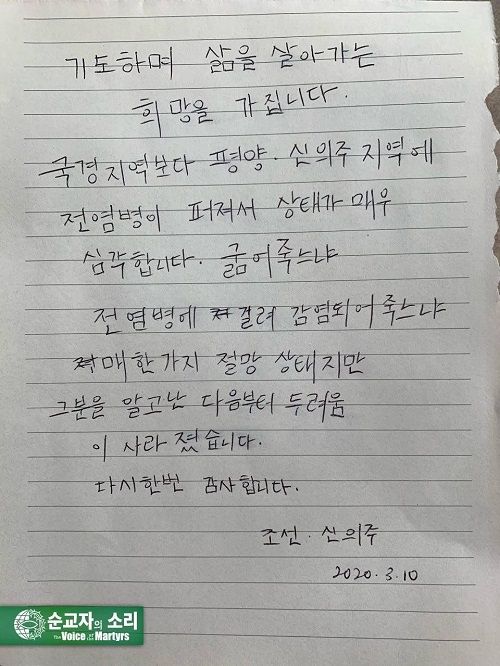 기도하며 삶을 살아가는
희망을 가집니다.
국경지역보다 평양·신의주지역에
전염병이 퍼져서 상태가 매우
심각합니다. 굶어죽느냐
전염병에 걸려 감염되어죽느냐
매한가지 절망 상태지만
그분을 알고난 다음부터 두려움
이 사라졌습니다.
다시한번 감사합니다.
조선·신의주
2020.3.10
순교자의 소리
The Voice of the Martyrs